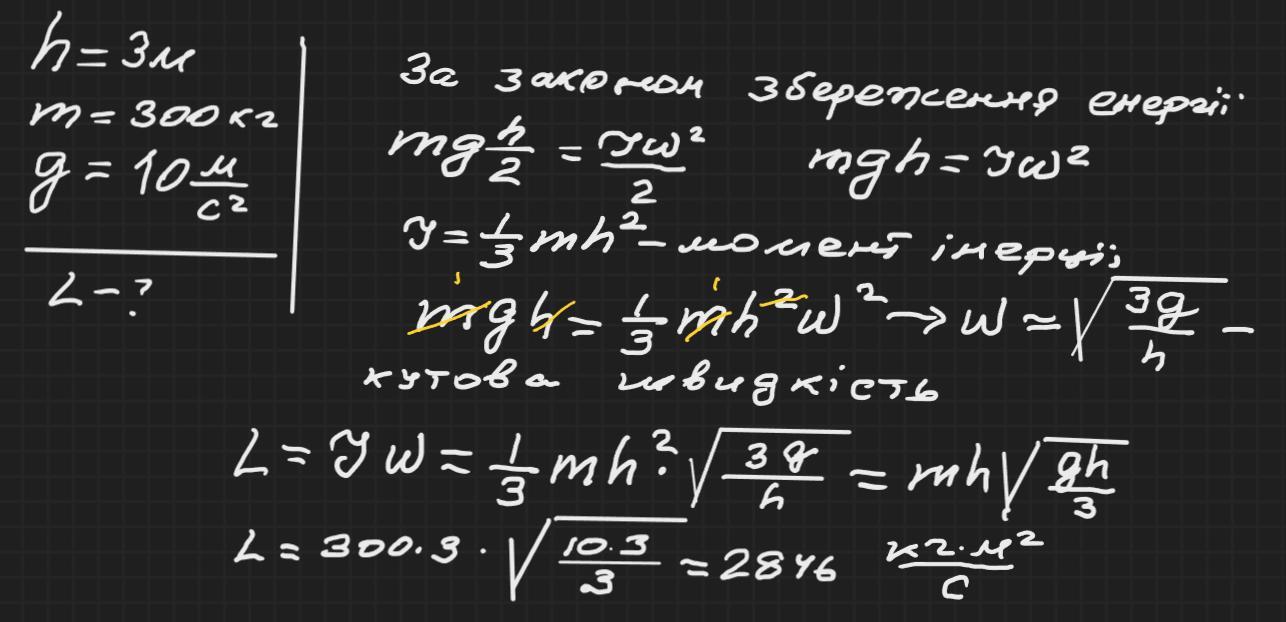 h = 3м
m = 300 кг
g = 10 м/с²
L - ?
За законом збереження енергії:
mg h/2 = Jω²/2    mgh = Jω²
J = 1/3 mh² - момент інерції;
mgh = 1/3 mh²ω² → ω = √(3g/h) -
кутова швидкість
L = Jω = 1/3 mh² · √(3g/h) = mh√(gh/3)
L = 300 · 3 · √(10·3/3) = 2846 кг·м²/с